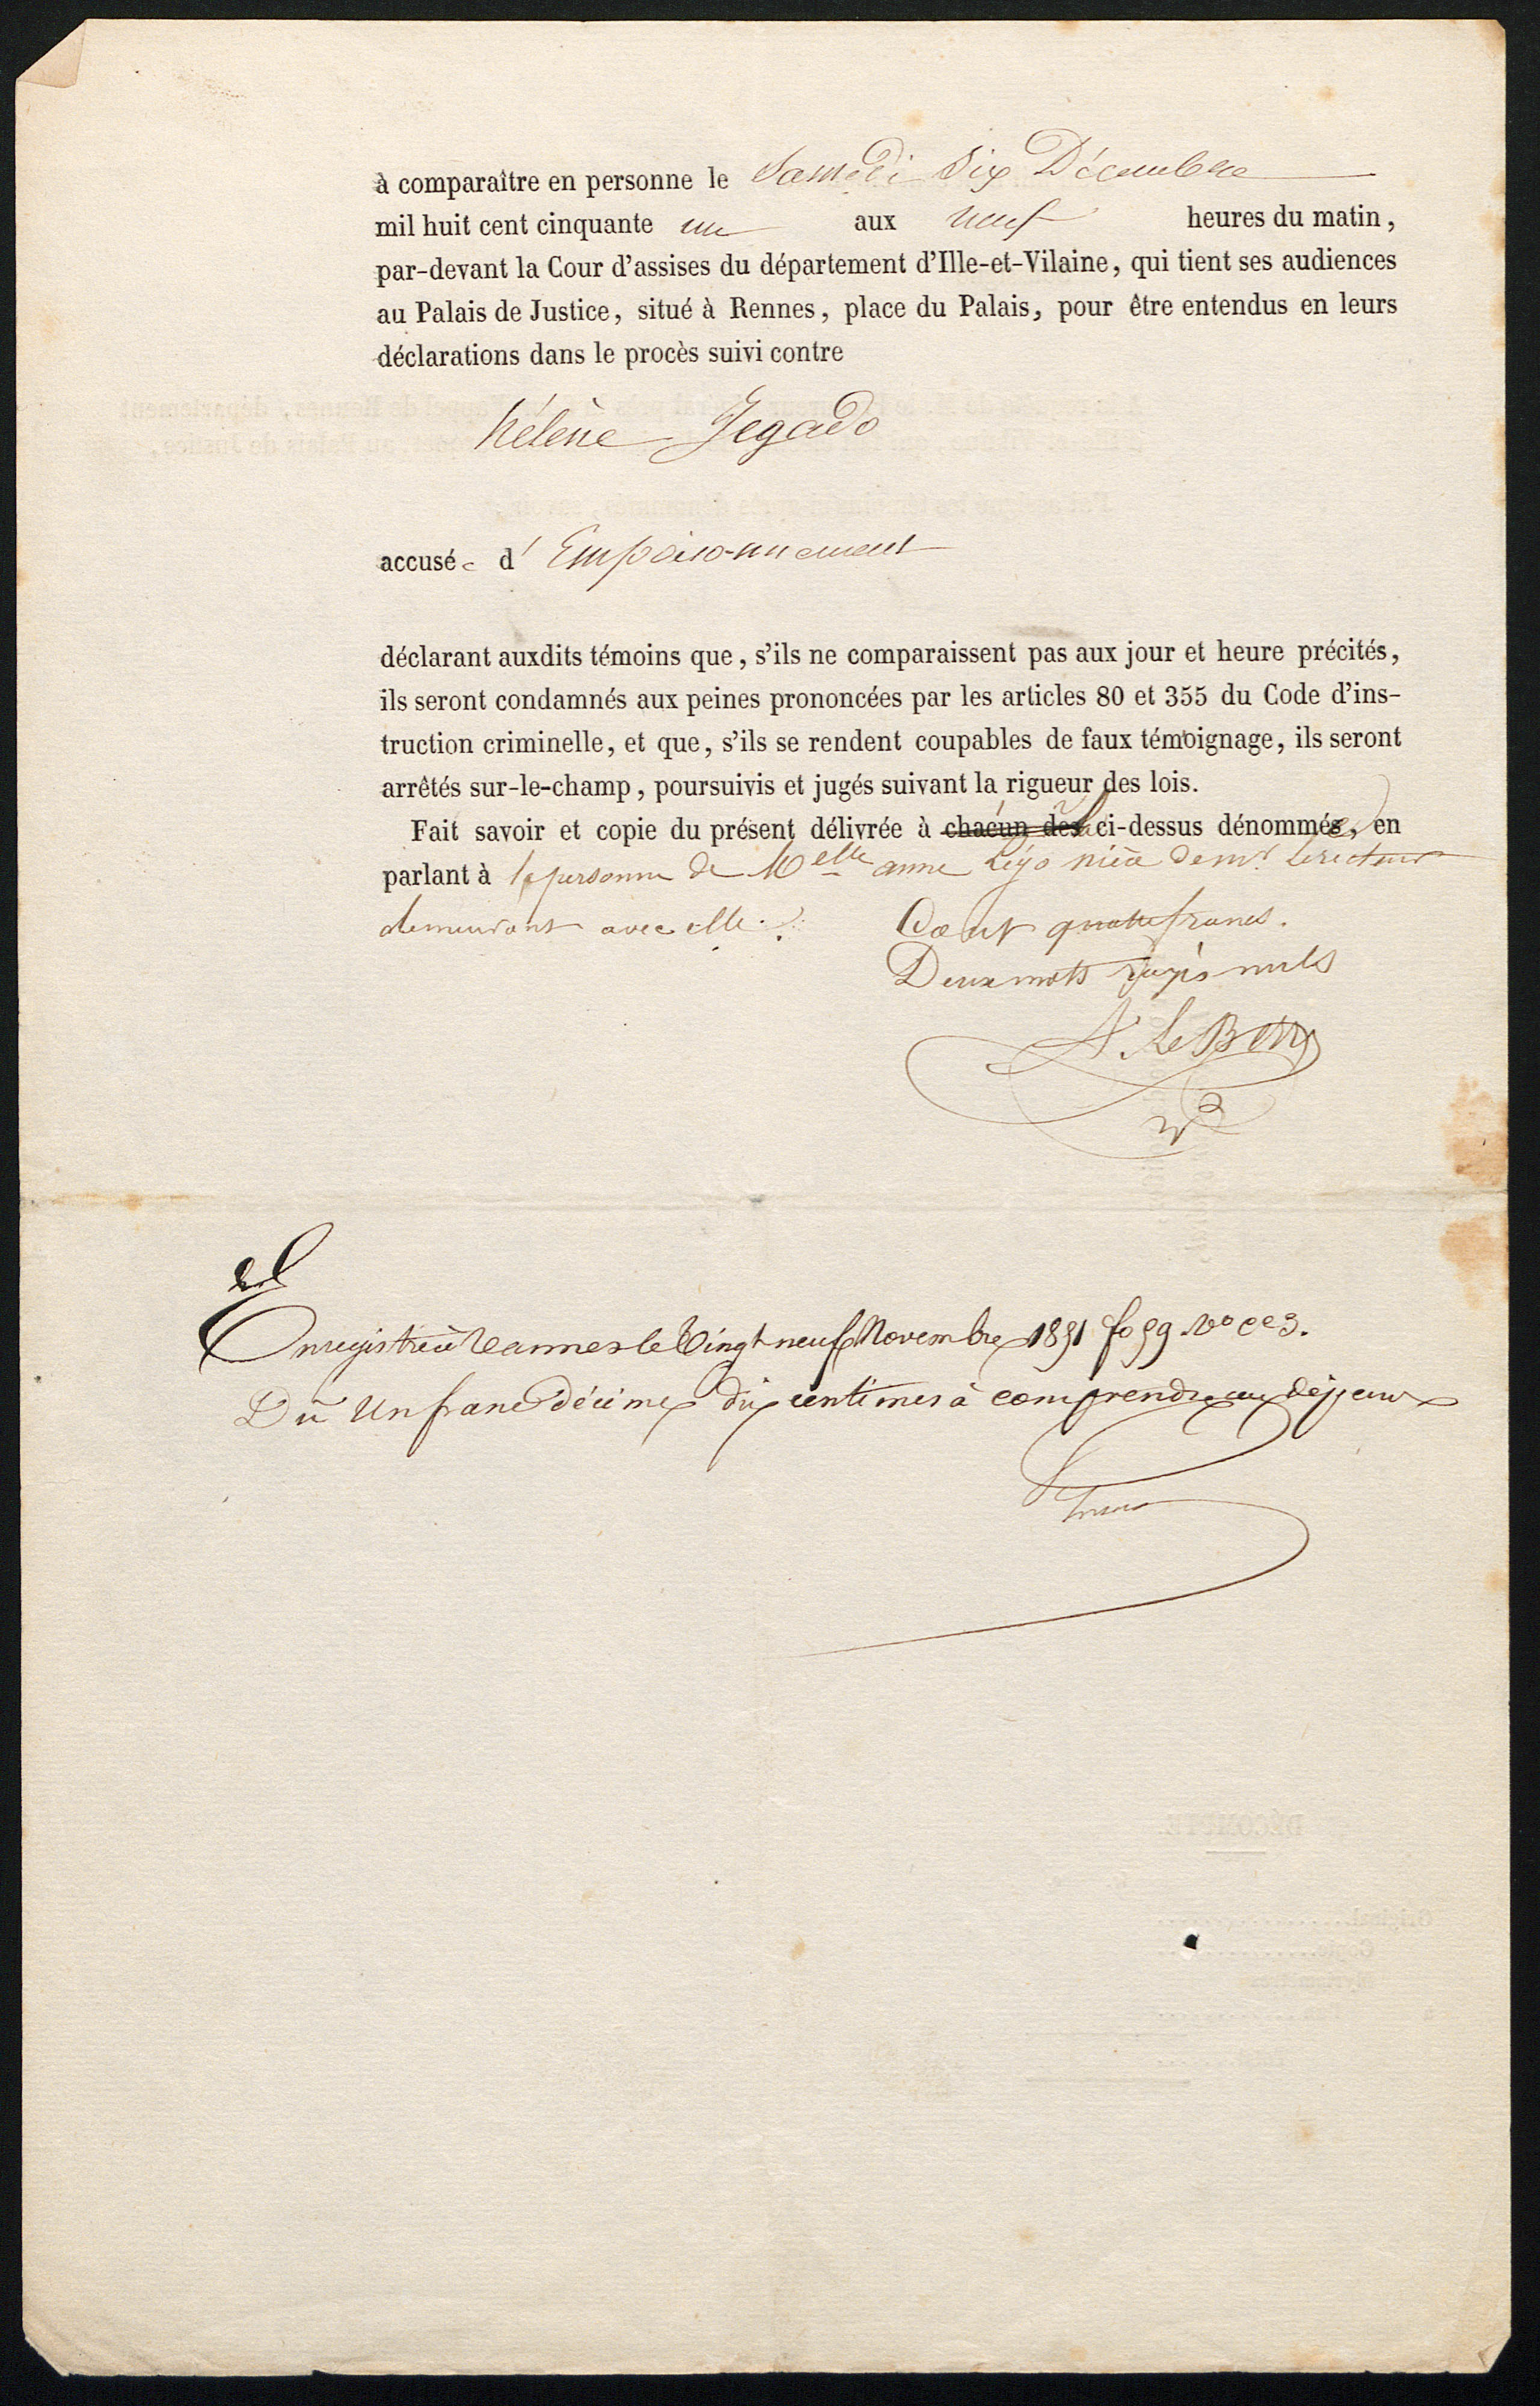 à comparaître en personne le Samedi Six Décembre
mil huit cent cinquante un aux neuf heures du matin,
par-devant la Cour d'assises du département d'Ille-et-Vilaine, qui tient ses audiences
au Palais de Justice, situé à Rennes, place du Palais, pour être entendus en leurs
déclarations dans le procès suivi contre
hélène Jegado
accusée d'Empoisonnement
déclarant auxdits témoins que, s'ils ne comparaissent pas aux jour et heure précités,
ils seront condamnés aux peines prononcées par les articles 80 et 355 du Code d'ins-
truction criminelle, et que, s'ils se rendent coupables de faux témoignage, ils seront
arrêtés sur-le-champ, poursuivis et jugés suivant la rigueur des lois.
Fait savoir et copie du présent délivrée à chacun des ci-dessus dénommés, en
parlant à la personne de Melle anne Légo nièce de mr. Le recteur
demeurant avec elle.
Cout quatre francs.
Deux mots rayés nuls
Enregistré à Vannes le Vingt neuf Novembre 1851 fo 59 Vo Ce 3.
Dû Un franc Décime dix centimes à comprendre aux dépens
DÉCOMPTE.